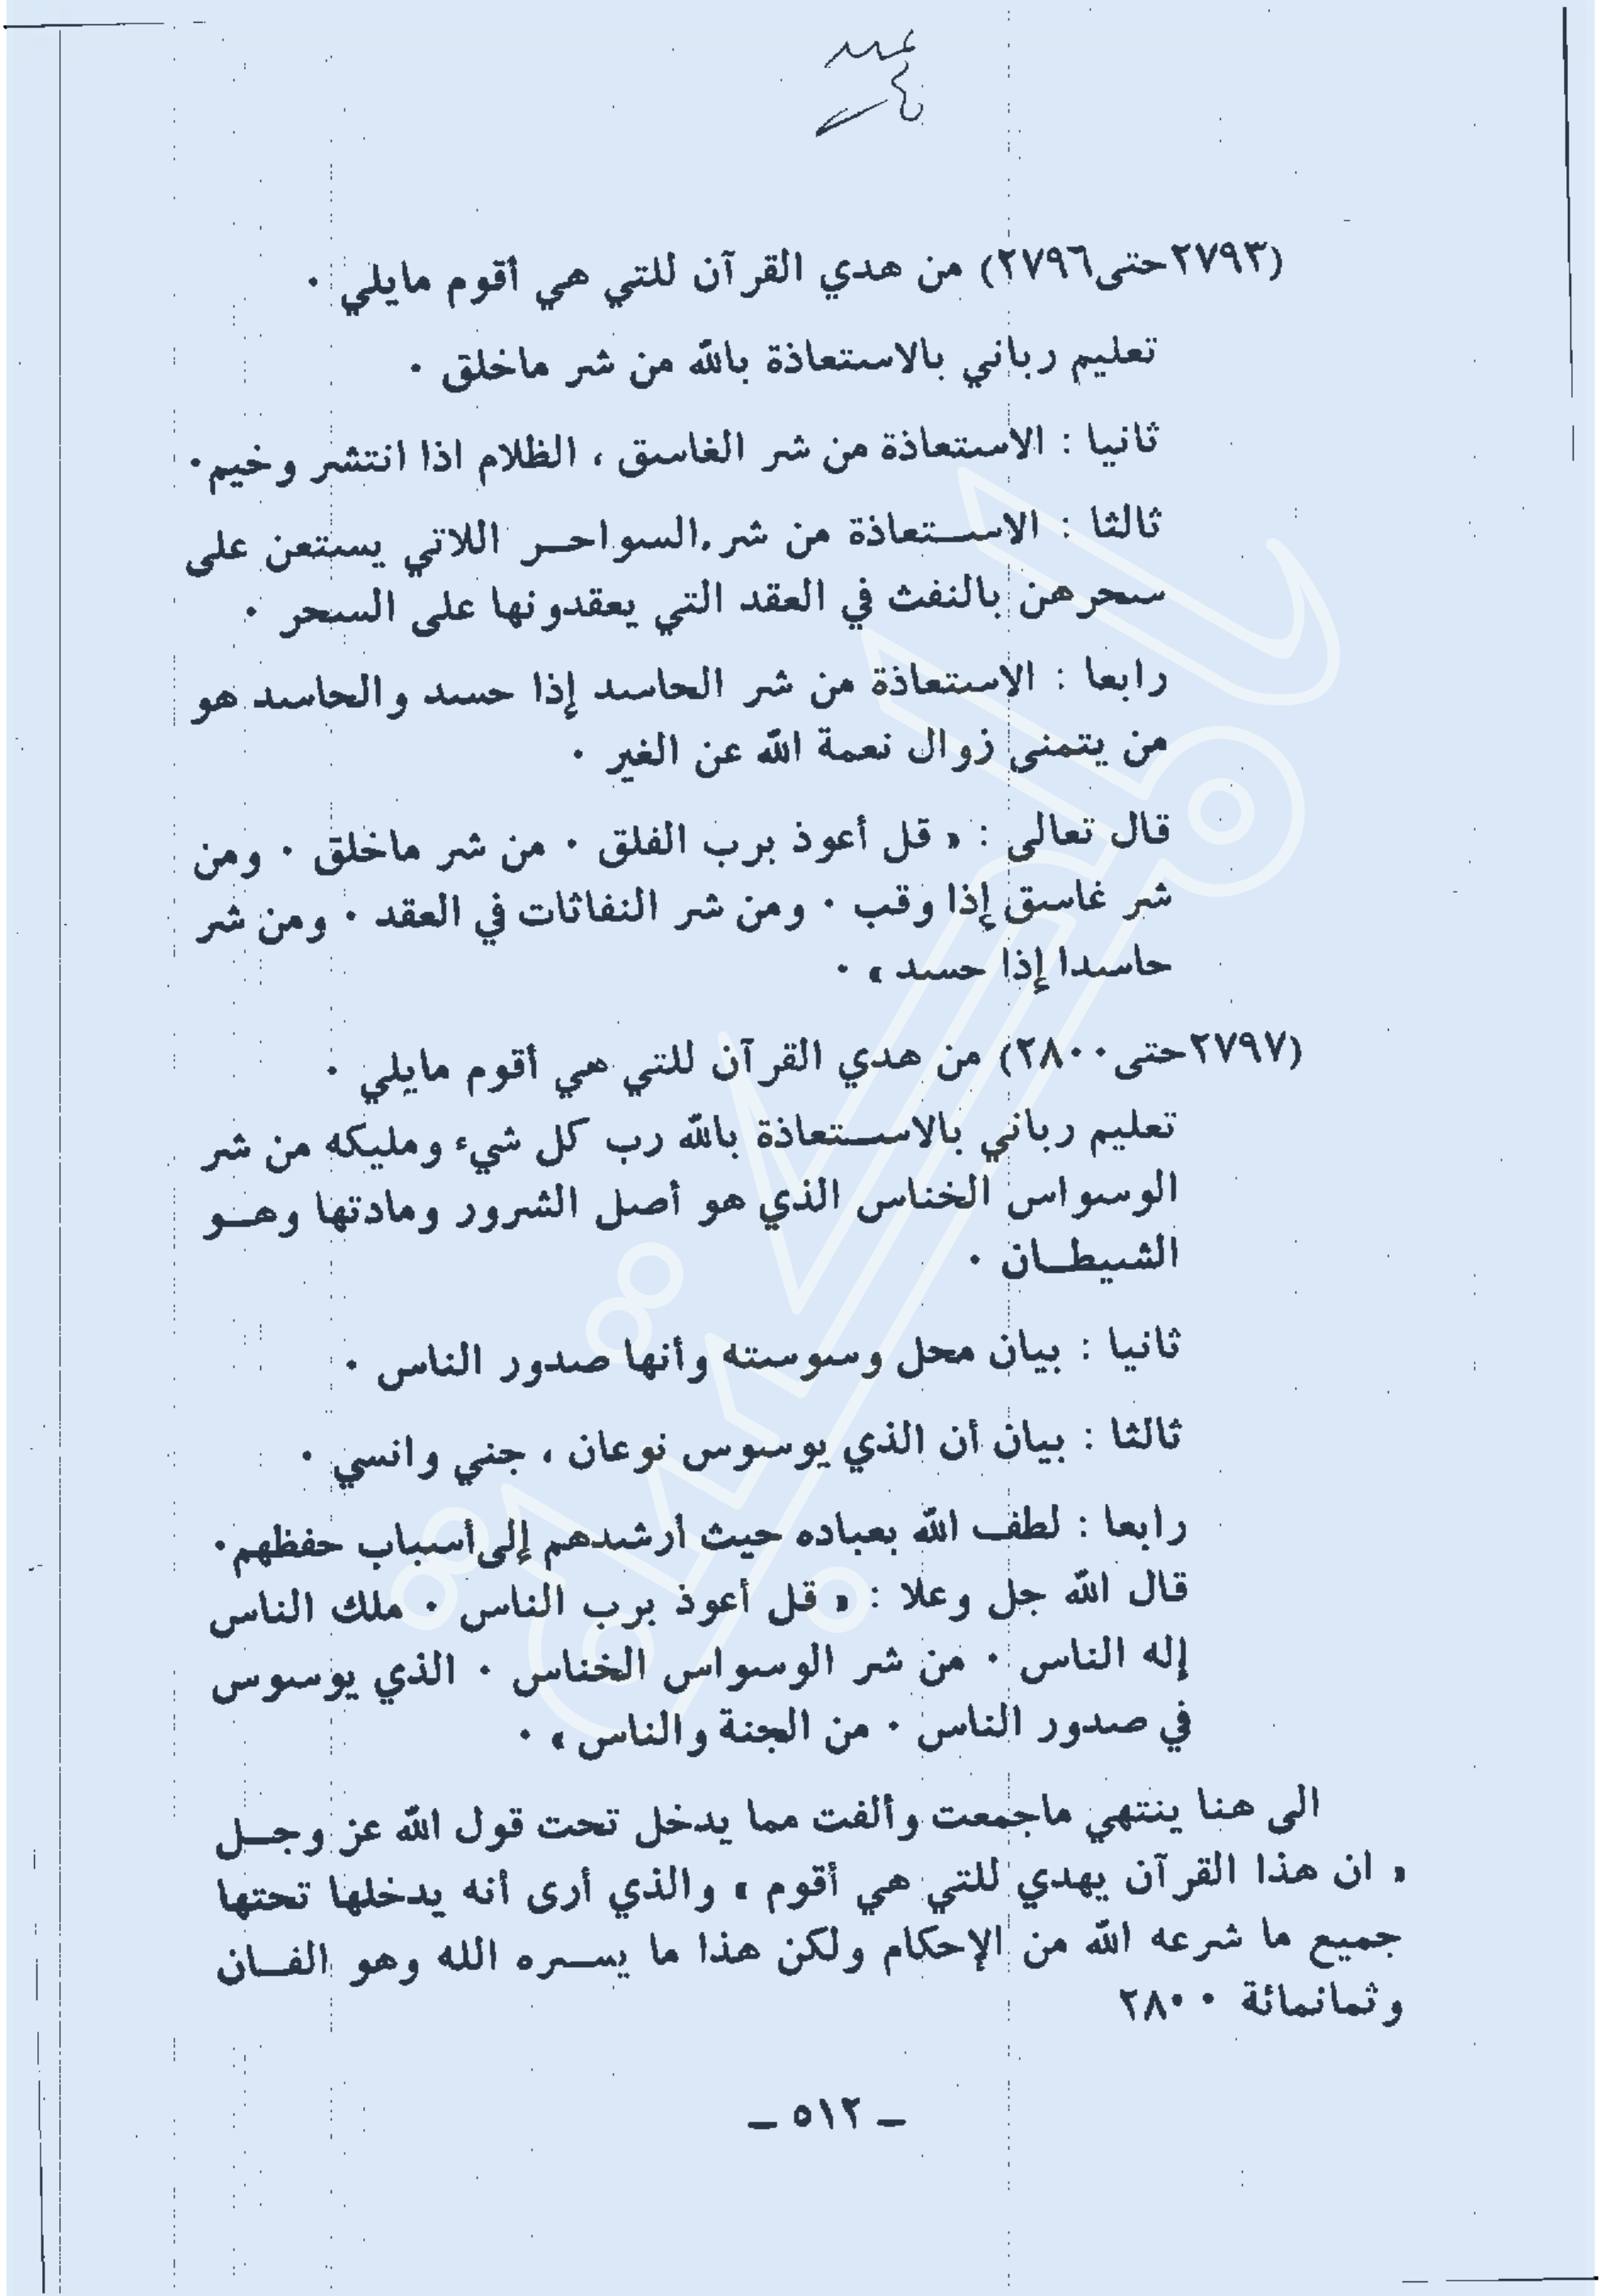 (٢٧٩٣حتى٢٧٩٦) من هدي القرآن للتي هي أقوم مايلي ٠
تعليم رباني بالاستعاذة بالله من شر ماخلق ٠
ثانيا : الاستعاذة من شر الغاسق ، الظلام اذا انتشر وخيم٠
ثالثا : الاستعاذة من شر السواحر اللاتي يستعن على
سحرهن بالنفث في العقد التي يعقدونها على السحر ٠
رابعا : الاستعاذة من شر الحاسد إذا حسد والحاسد هو
من يتمنى زوال نعمة الله عن الغير ٠
قال تعالى : « قل أعوذ برب الفلق ٠ من شر ماخلق ٠ ومن
شر غاسق إذا وقب ٠ ومن شر النفاثات في العقد ٠ ومن شر
حاسدا إذا حسد » ٠
(٢٧٩٧حتى٢٨٠٠) من هدي القرآن للتي هي أقوم مايلي ٠
تعليم رباني بالاستعاذة بالله رب كل شيء ومليكه من شر
الوسواس الخناس الذي هو أصل الشرور ومادتها وهو
الشيطان ٠
ثانيا : بيان محل وسوسته وأنها صدور الناس ٠
ثالثا : بيان أن الذي يوسوس نوعان ، جني وانسي ٠
رابعا : لطف الله بعباده حيث أرشدهم إلى أسباب حفظهم٠
قال الله جل وعلا : « قل أعوذ برب الناس ٠ ملك الناس
إله الناس ٠ من شر الوسواس الخناس ٠ الذي يوسوس
في صدور الناس ٠ من الجنة والناس » ٠
الى هنا ينتهي ماجمعت وألفت مما يدخل تحت قول الله عز وجل
« ان هذا القرآن يهدي للتي هي أقوم » والذي أرى أنه يدخلها تحتها
جميع ما شرعه الله من الإحكام ولكن هذا ما يسره الله وهو الفان
وثمانمائة ٢٨٠٠
ـ ٥١٢ ـ